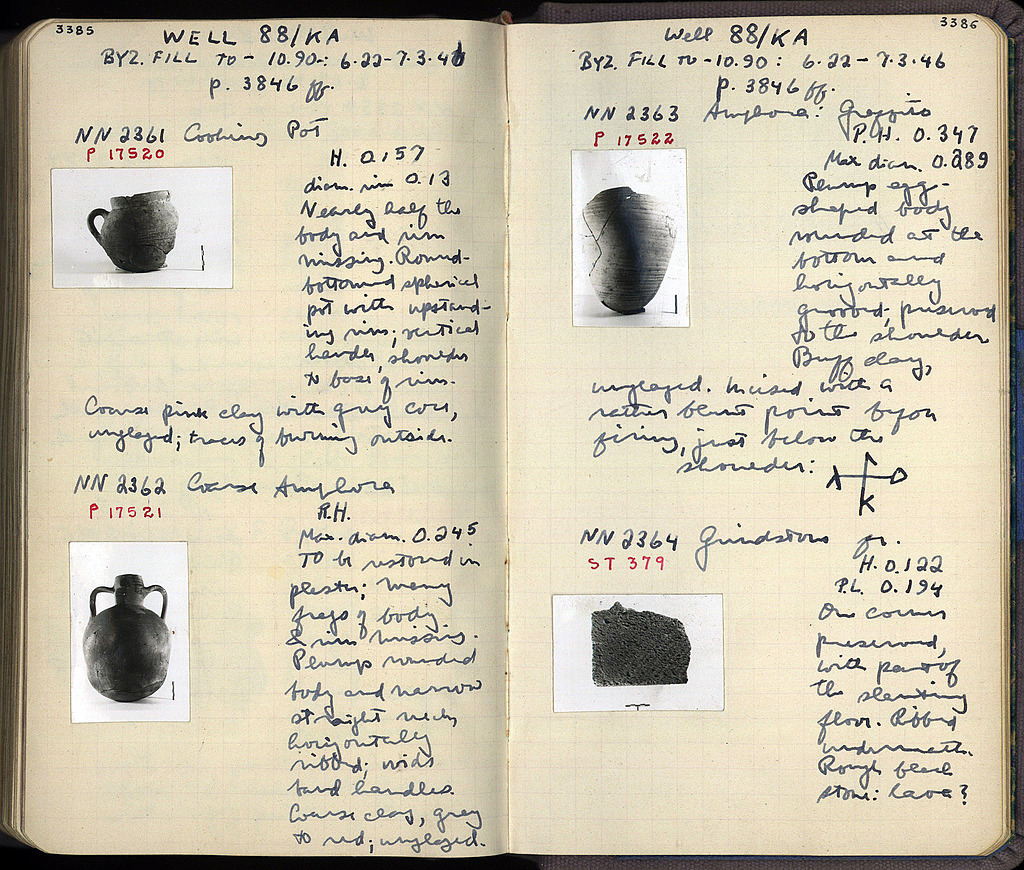 3385
WELL 88/KA
BYZ. FILL TO - 10.90-: 6.22-7.3.46
p. 3846 ff.
NN 2361 Cooking Pot
P 17520
H. 0.157
diam. rim 0.13
Nearly half the
body and rim
missing. Round-
bottomed spherical
pot with upstand-
ing rim; vertical
handle, shoulder
to base of rim.
Coarse pink clay with gray core,
unglazed; traces of burning outside.
NN 2362 Coarse Amphora
P 17521
P.H.
Max. diam. 0.245
To be restored in
plaster; many
frags of body
& rim missing.
Plump rounded
body and narrow
straight neck,
horizontally
ribbed; wide
band handles.
Coarse clay, gray
to red; unglazed.
3386
Well 88/KA
BYZ. FILL TO -10.90: 6.22 - 7.3.46
p. 3846 ff.
NN 2363 Amphora: Graffito
P 17522
P.H. 0.347
Max diam. 0.289
Plump egg-
shaped body
rounded at the
bottom and
horizontally
grooved, preserved
to the shoulder
Buff clay,
unglazed. Incised with a
rather blunt point before
firing, just below the
shoulder:
K
NN 2364 Grindstone fr.
ST 379
H. 0.122
P.L. 0.194
One corner
preserved,
with part of
the slanting
floor. Ribbed
underneath.
Rough black
stone: lava?